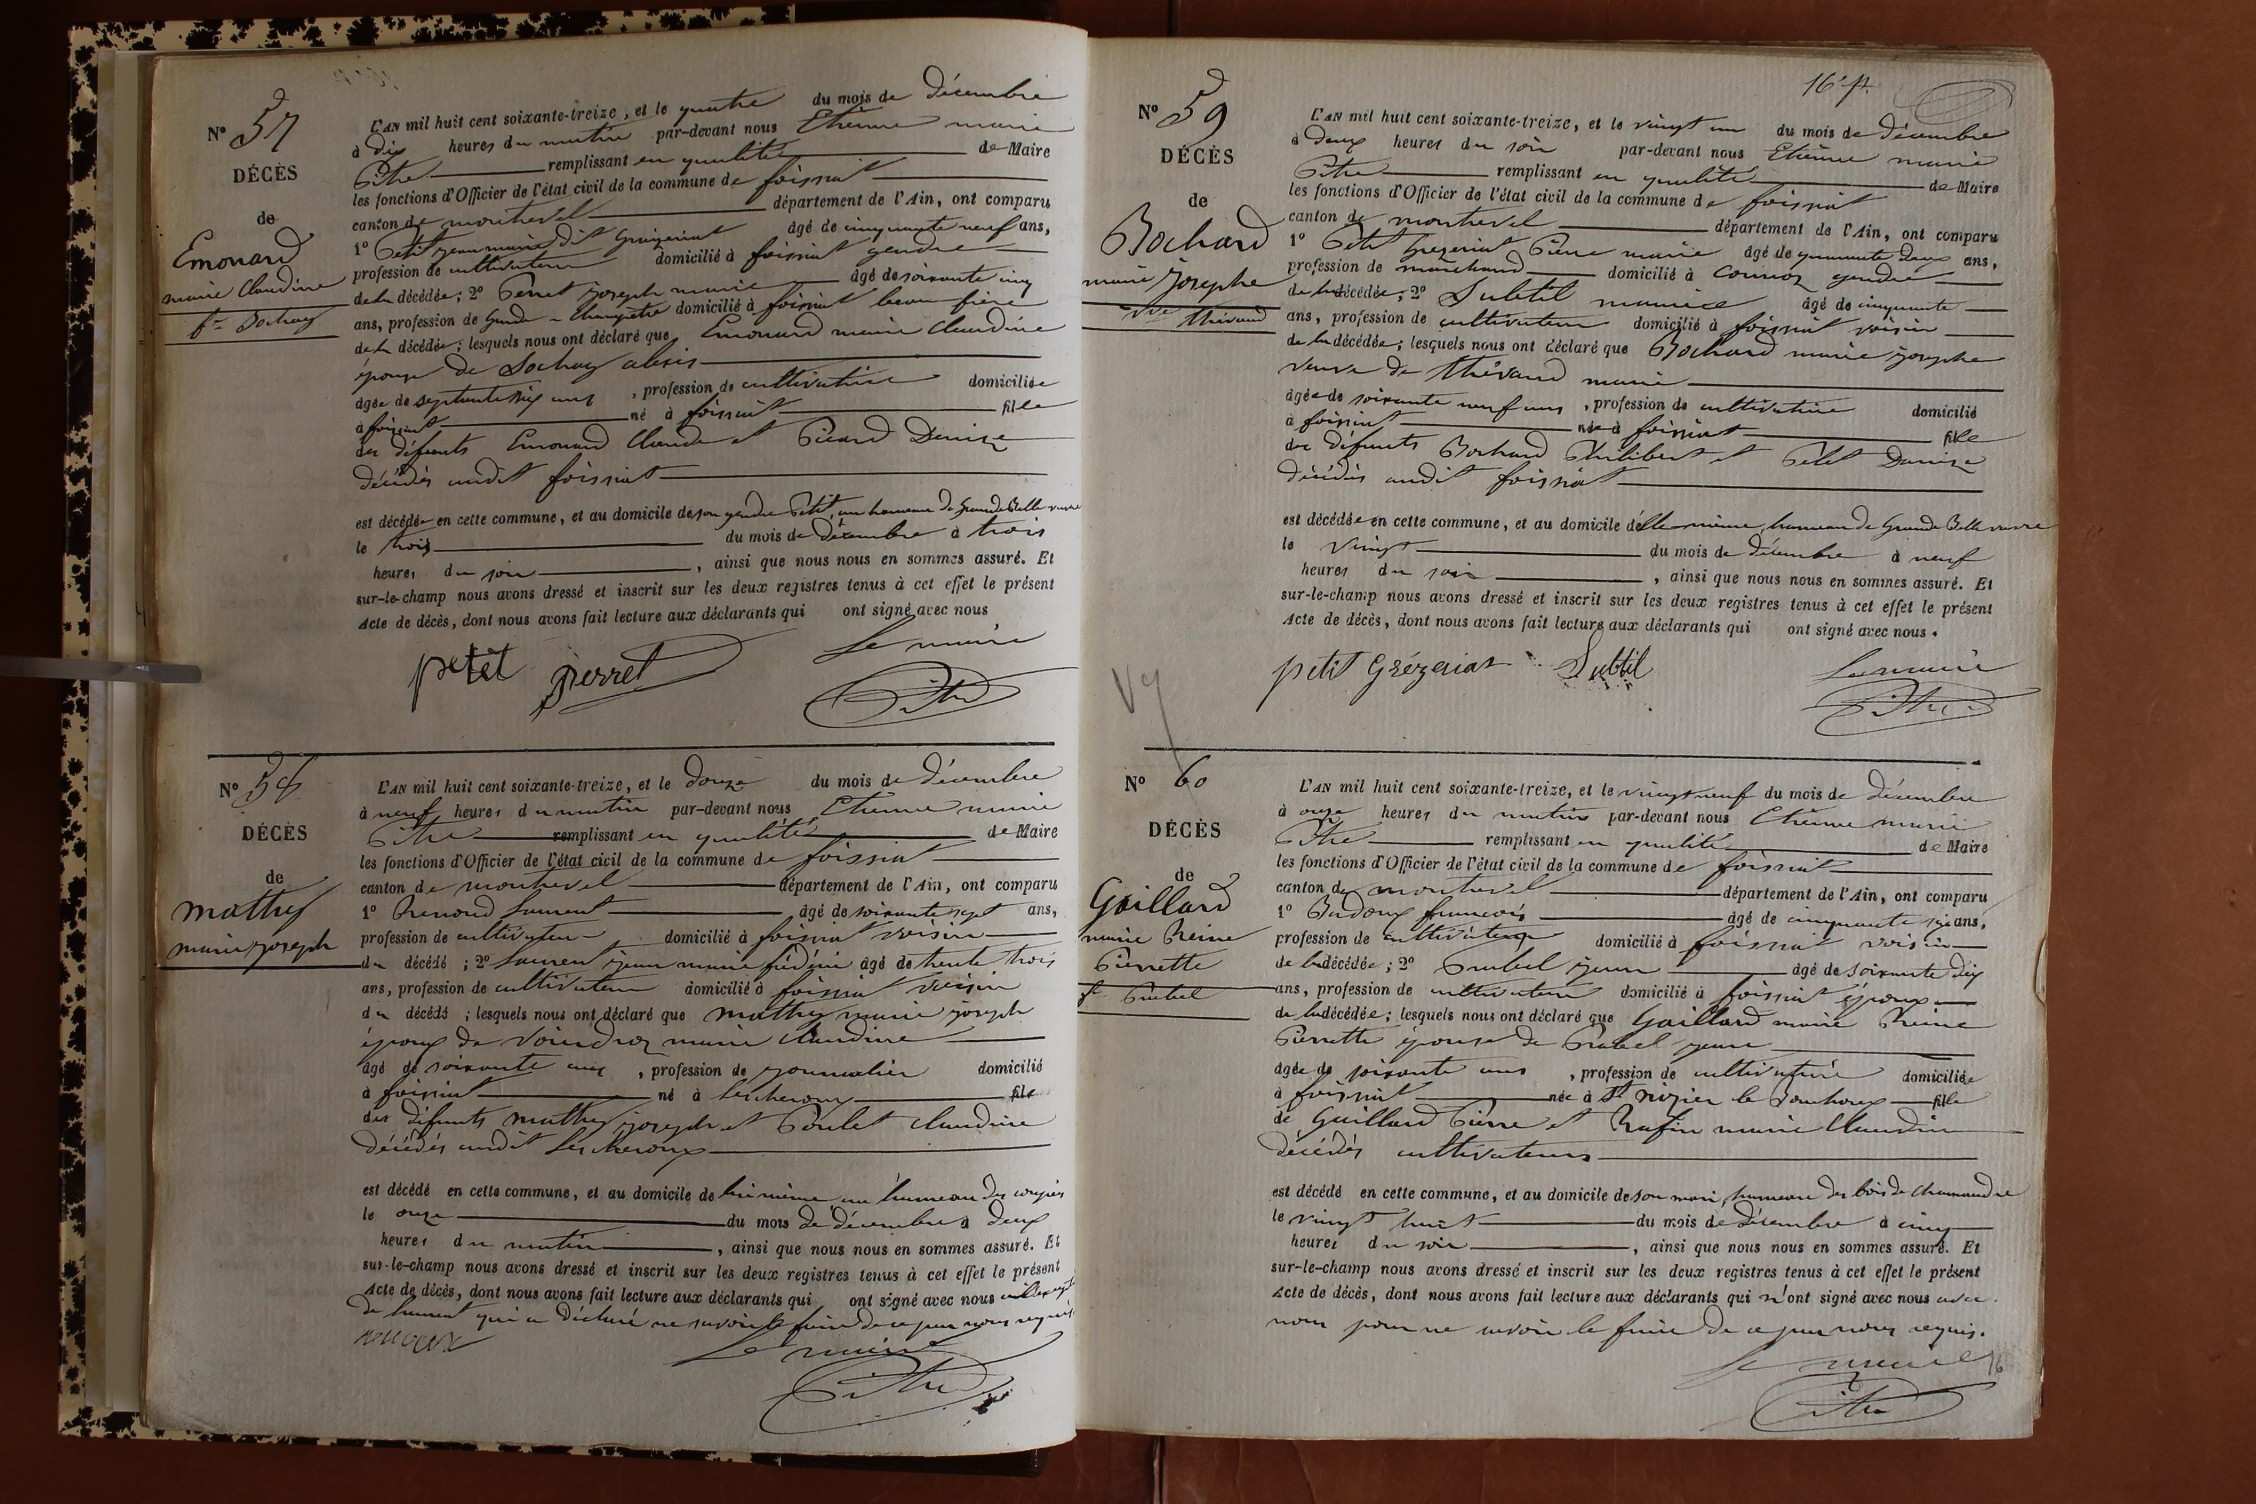 N° 57
DÉCÈS
de
Emonard
marie Claudine
fe Bochay
L'AN mil huit cent soixante-treize, et le quatre du mois de décembre
à dix heures du matin par-devant nous Etienne marie
Pitre remplissant en qualité de Maire
les fonctions d'Officier de l'état civil de la commune de foissiat
canton de montrevel département de l'Ain, ont comparu
1° Petit jean marie dit âgé de cinquante neuf ans,
profession de cultivateur domicilié à foissiat gendre
de la décédée ; 2° Perret joseph marie âgé de soixante cinq
ans, profession de Garde-Champêtre domicilié à foissiat beau-frère
de la décédée ; lesquels nous ont déclaré que Emonard marie Claudine
épouse de Bochay alexis
âgée de septante six ans, profession de cultivatrice domiciliée
à foissiat né à foissiat fille
des défunts Emonard Claude et Picard Denise
décédés audit foissiat
est décédée en cette commune, et au domicile de son gendre Petit, au hameau de Grande Bellevavre
le trois du mois de décembre à trois
heures du soir, ainsi que nous nous en sommes assuré. Et
sur-le-champ nous avons dressé et inscrit sur les deux registres tenus à cet effet le présent
Acte de décès, dont nous avons fait lecture aux déclarants qui ont signé avec nous
Le maire
petit perret Pitre
N° 58
DÉCÈS
de
mathy
marie joseph
L'AN mil huit cent soixante-treize, et le douze du mois de décembre
à neuf heures du matin par-devant nous Etienne marie
Pitre remplissant en qualité de Maire
les fonctions d'Officier de l'état civil de la commune de foissiat
canton de montrevel département de l'Ain, ont comparu
1° Renoud Laurent âgé de soixante sept ans,
profession de cultivateur domicilié à foissiat voisin
du décédé ; 2° Laurent jean marie frédéric âgé de trente trois
ans, profession de cultivateur domicilié à foissiat voisin
du décédé ; lesquels nous ont déclaré que mathy marie joseph
époux de marie Claudine
âgé de soixante ans, profession de journalier domicilié
à foissiat né à Lescheroux fils
des défunts mathy joseph et Poulet Claudine
décédés audit Lescheroux
est décédé en cette commune, et au domicile de lui même au hameau des
le onze du mois de décembre à deux
heures du matin, ainsi que nous nous en sommes assuré. Et
sur-le-champ nous avons dressé et inscrit sur les deux registres tenus à cet effet le présent
Acte de décès, dont nous avons fait lecture aux déclarants qui ont signé avec nous à l'exept
de laurent qui a déclaré ne savoir le faire de ce par nous requis
Le maire
Pitre
16e ft.
N° 59
DÉCÈS
de
Bochard
marie josephe
Vve thévand
L'AN mil huit cent soixante-treize, et le vingt un du mois de décembre
à deux heures du soir par-devant nous Etienne marie
Pitre remplissant en qualité de Maire
les fonctions d'Officier de l'état civil de la commune de foissiat
canton de montrevel département de l'Ain, ont comparu
1° Petit Grezeriat Pierre marie âgé de quarante deux ans,
profession de marchand domicilié à Cormoz gendre
de la décédée ; 2° Subtil maurice âgé de cinquante
ans, profession de cultivateur domicilié à foissiat voisin
de la décédée ; lesquels nous ont déclaré que Bochard marie josephe
veuve de thévand marie
âgée de soixante neuf ans, profession de cultivatrice domicilié
à foissiat née à foissiat fille
des défunts Bochard Philibert et Petit Denise
décédés audit foissiat
est décédée en cette commune, et au domicile d'elle-même, hameau de Grande Bellevavre
le vingt du mois de décembre à neuf
heures du soir, ainsi que nous nous en sommes assuré. Et
sur-le-champ nous avons dressé et inscrit sur les deux registres tenus à cet effet le présent
Acte de décès, dont nous avons fait lecture aux déclarants qui ont signé avec nous.
petit Grézeriat Subtil Le maire
Pitre
N° 60
DÉCÈS
de
Gaillard
marie Reine
Pierrette
fe Prabel
L'AN mil huit cent soixante-treize, et le vingt neuf du mois de décembre
à onze heures du matin par-devant nous Etienne marie
Pitre remplissant en qualité de Maire
les fonctions d'Officier de l'état civil de la commune de foissiat
canton de montrevel département de l'Ain, ont comparu
1° françois âgé de cinquante six ans,
profession de cultivateur domicilié à foissiat voisin
de la décédée ; 2° Prabel jean âgé de soixante dix
ans, profession de cultivateur domicilié à foissiat époux
de la décédée ; lesquels nous ont déclaré que Gaillard marie Reine
Pierrette épouse de Prabel jean
âgée de soixante ans, profession de cultivatrice domiciliée
à foissiat née à St nizier le Bouchoux fille
de Gaillard Pierre et Rafin marie Claudine
décédés cultivateurs
est décédé en cette commune, et au domicile de son mari, hameau des bois de Chamandre
le vingt huit du mois de décembre à cinq
heures du soir, ainsi que nous nous en sommes assuré. Et
sur-le-champ nous avons dressé et inscrit sur les deux registres tenus à cet effet le présent
Acte de décès, dont nous avons fait lecture aux déclarants qui n'ont signé avec nous avec
nous pour ne savoir le faire de ce par nous requis.
Le maire
Pitre